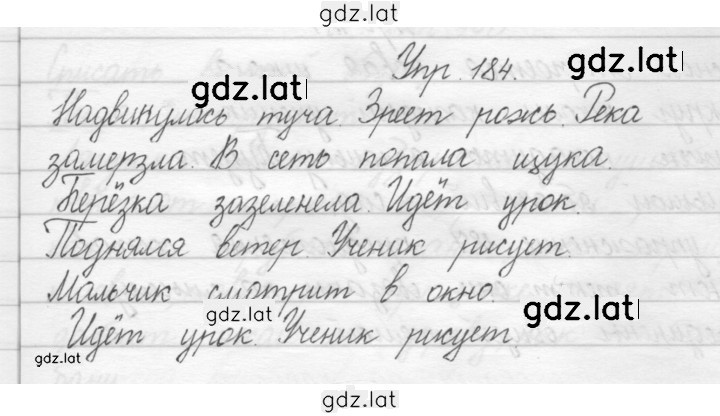 gdz.lat
Упр. 184.
gdz.lat
gdz.lat
Надвинулась туча. Зреет рожь. Река
замерзла. В сеть попала щука.
Берёзка зазеленела. Идёт урок.
Поднялся ветер. Ученик рисует.
Мальчик смотрит в окно.
gdz.lat
gdz.lat
Идёт урок. Ученик рисует
gdz.lat
gdz.lat